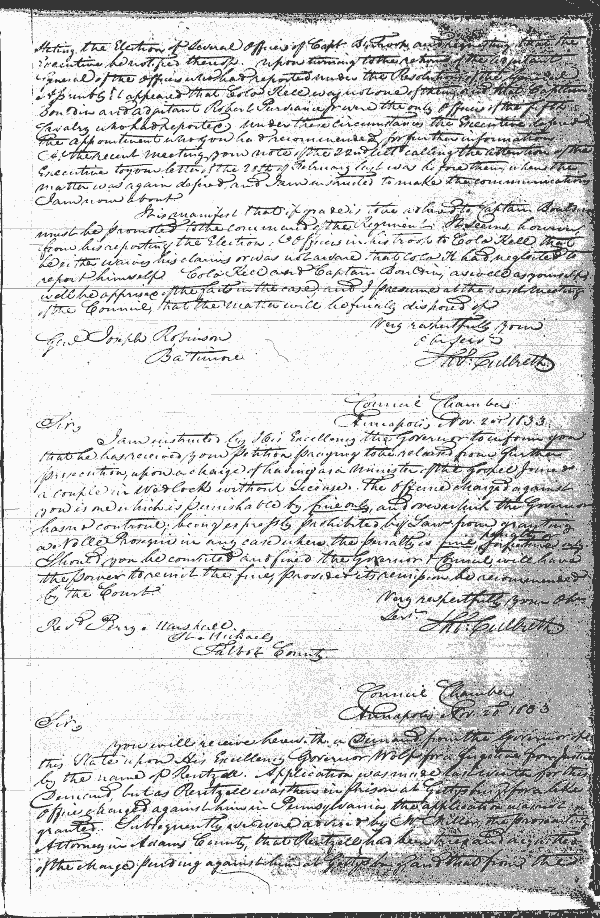 the Election of several Officers of Capt. and requesting that the
Executive be notified thereof. upon turning to the return of the Adjutant
General of the Officers who had reported under the Resolution of the
it appeared that Colo. Kell was not one of them, and that Captain
Bouldin and adjutant Robert Purviance were the only Officers of the fifth
Cavalry who had reported. Under these circumstances the Executive
the appointment who you had recommended, for further information
At the recent meeting, your note of the 22nd calling the attention of the
Executive to your letter of the 28th of February last was before them, when the
matter was again defered and I am instructed to make the communication
I am now about
It is manifest that if grade is to be adhered to Captain Bouldin
must be promoted to the command of the Regiment. It seems however,
from his reporting the Election of Officers in his troop to Colo. Kell, that
he either waives his claims or was not aware, that Colo. K had neglected to
report himself. Colo. Kell and Captain Bouldin, as well as yourself
will be apprised of the facts in the case, and I presume at the next meeting
of the Council, that the matter will be finally disposed of
Very respectfully your
Ob. Serv.
Genl. Joseph Robinson
Baltimore
Thos. Culbreth
Council Chamber
Annapolis Nov. 20th 1833.
Sir,
I am instructed by His Excellency the Governor to inform you
that he has received your Petition praying to be released from further
prosecution, upon a charge of having as a Minister of the Gospel, joined
a couple in Wedlock without License. The offence charged against
you is one which is punishable by fine only, and over which the Governor
has no control, being expressly prohibited by Law from granting
a Nolle Prosequi in any case where the penalty is fine, penalty or forfeiture only
Should you be convicted and fined the Governor & Council will have
the power to remit the fine, provided its remission be recommended
by the Court
Very respectfully your Ob.
Serv.
Thos. Culbreth
Revd. Perry Marshall
St. Michaels
Talbot County
Council Chamber
Annapolis Nov. 20 1833
Sir,
you will receive herewith a Demand from the Governor of
this State upon His Excellency Governor Wolf for a fugitive from Justice
by the name of Rentzell. Application was made last winter for this
Demand but as Rentzell was then in prison at Gettysburg for a like
Offence charged against him in Pennsylvania, the application was not
granted. Subsequently we were advised by Mr. Miller, the prosecuting
Attorney in Adams County, that Rentzell had been and acquitted
of the charge pending against him at Gettysburg and that from the